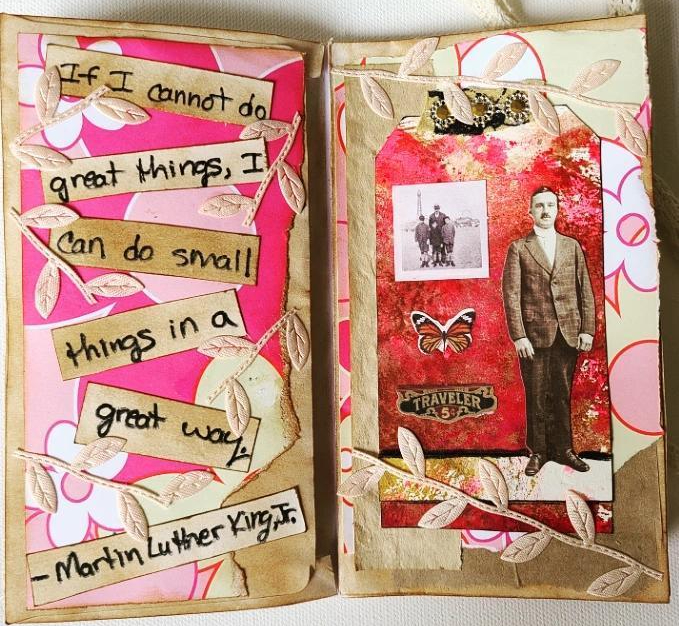 If I cannot do
great things, I
can do small
things in a
great way.
- Martin Luther King, Jr.
TRAVELER
5¢